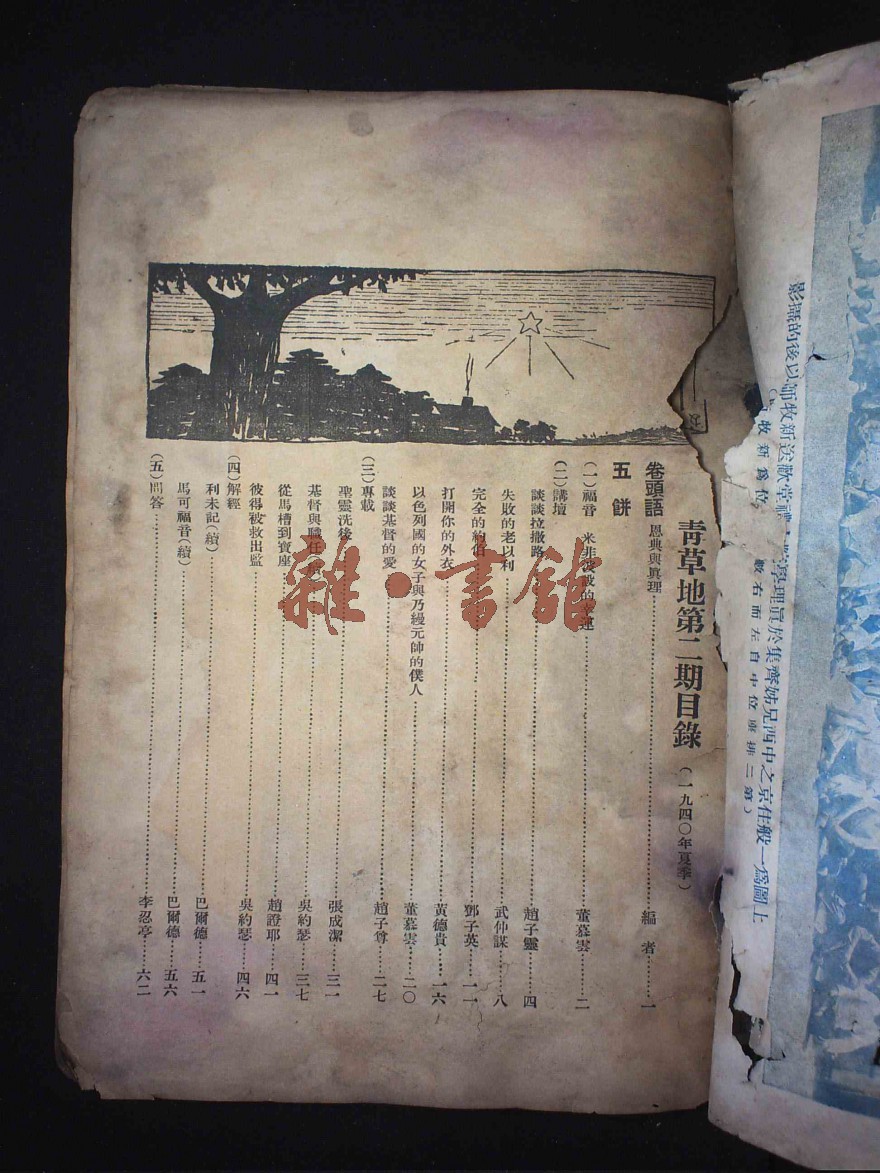 青草地第二期目錄 (一九四〇年夏季)
卷頭語 恩典與眞理 編者 一
五餅
(一)福音 米非波設的幸運 董慕雲 二
(二)講壇
談談拉撒路 趙子靈 四
失敗的老以利 武仲謀 八
完全的約伯 鄧子英 一一
打開你的外衣 黃德貴 一六
以色列國的女子與乃縵元帥的僕人 董慕雲 二〇
談談基督的愛 趙子尊 二七
(三)專載
聖靈洗後 張成潔 三一
基督與職任(續) 吳約瑟 三七
從馬槽到寶座 趙證耶 四一
彼得被救出監 吳約瑟 四六
(四)解經
利未記(續) 巴爾德 五一
馬可福音(續) 巴爾德 五六
(五)問答 李忍亭 六二
上圖爲一般住京之中西兄姊齊集於眞理學 堂歡送新牧師以後的攝影
(第二排座位中自左而右數 位爲新牧
雜·書館